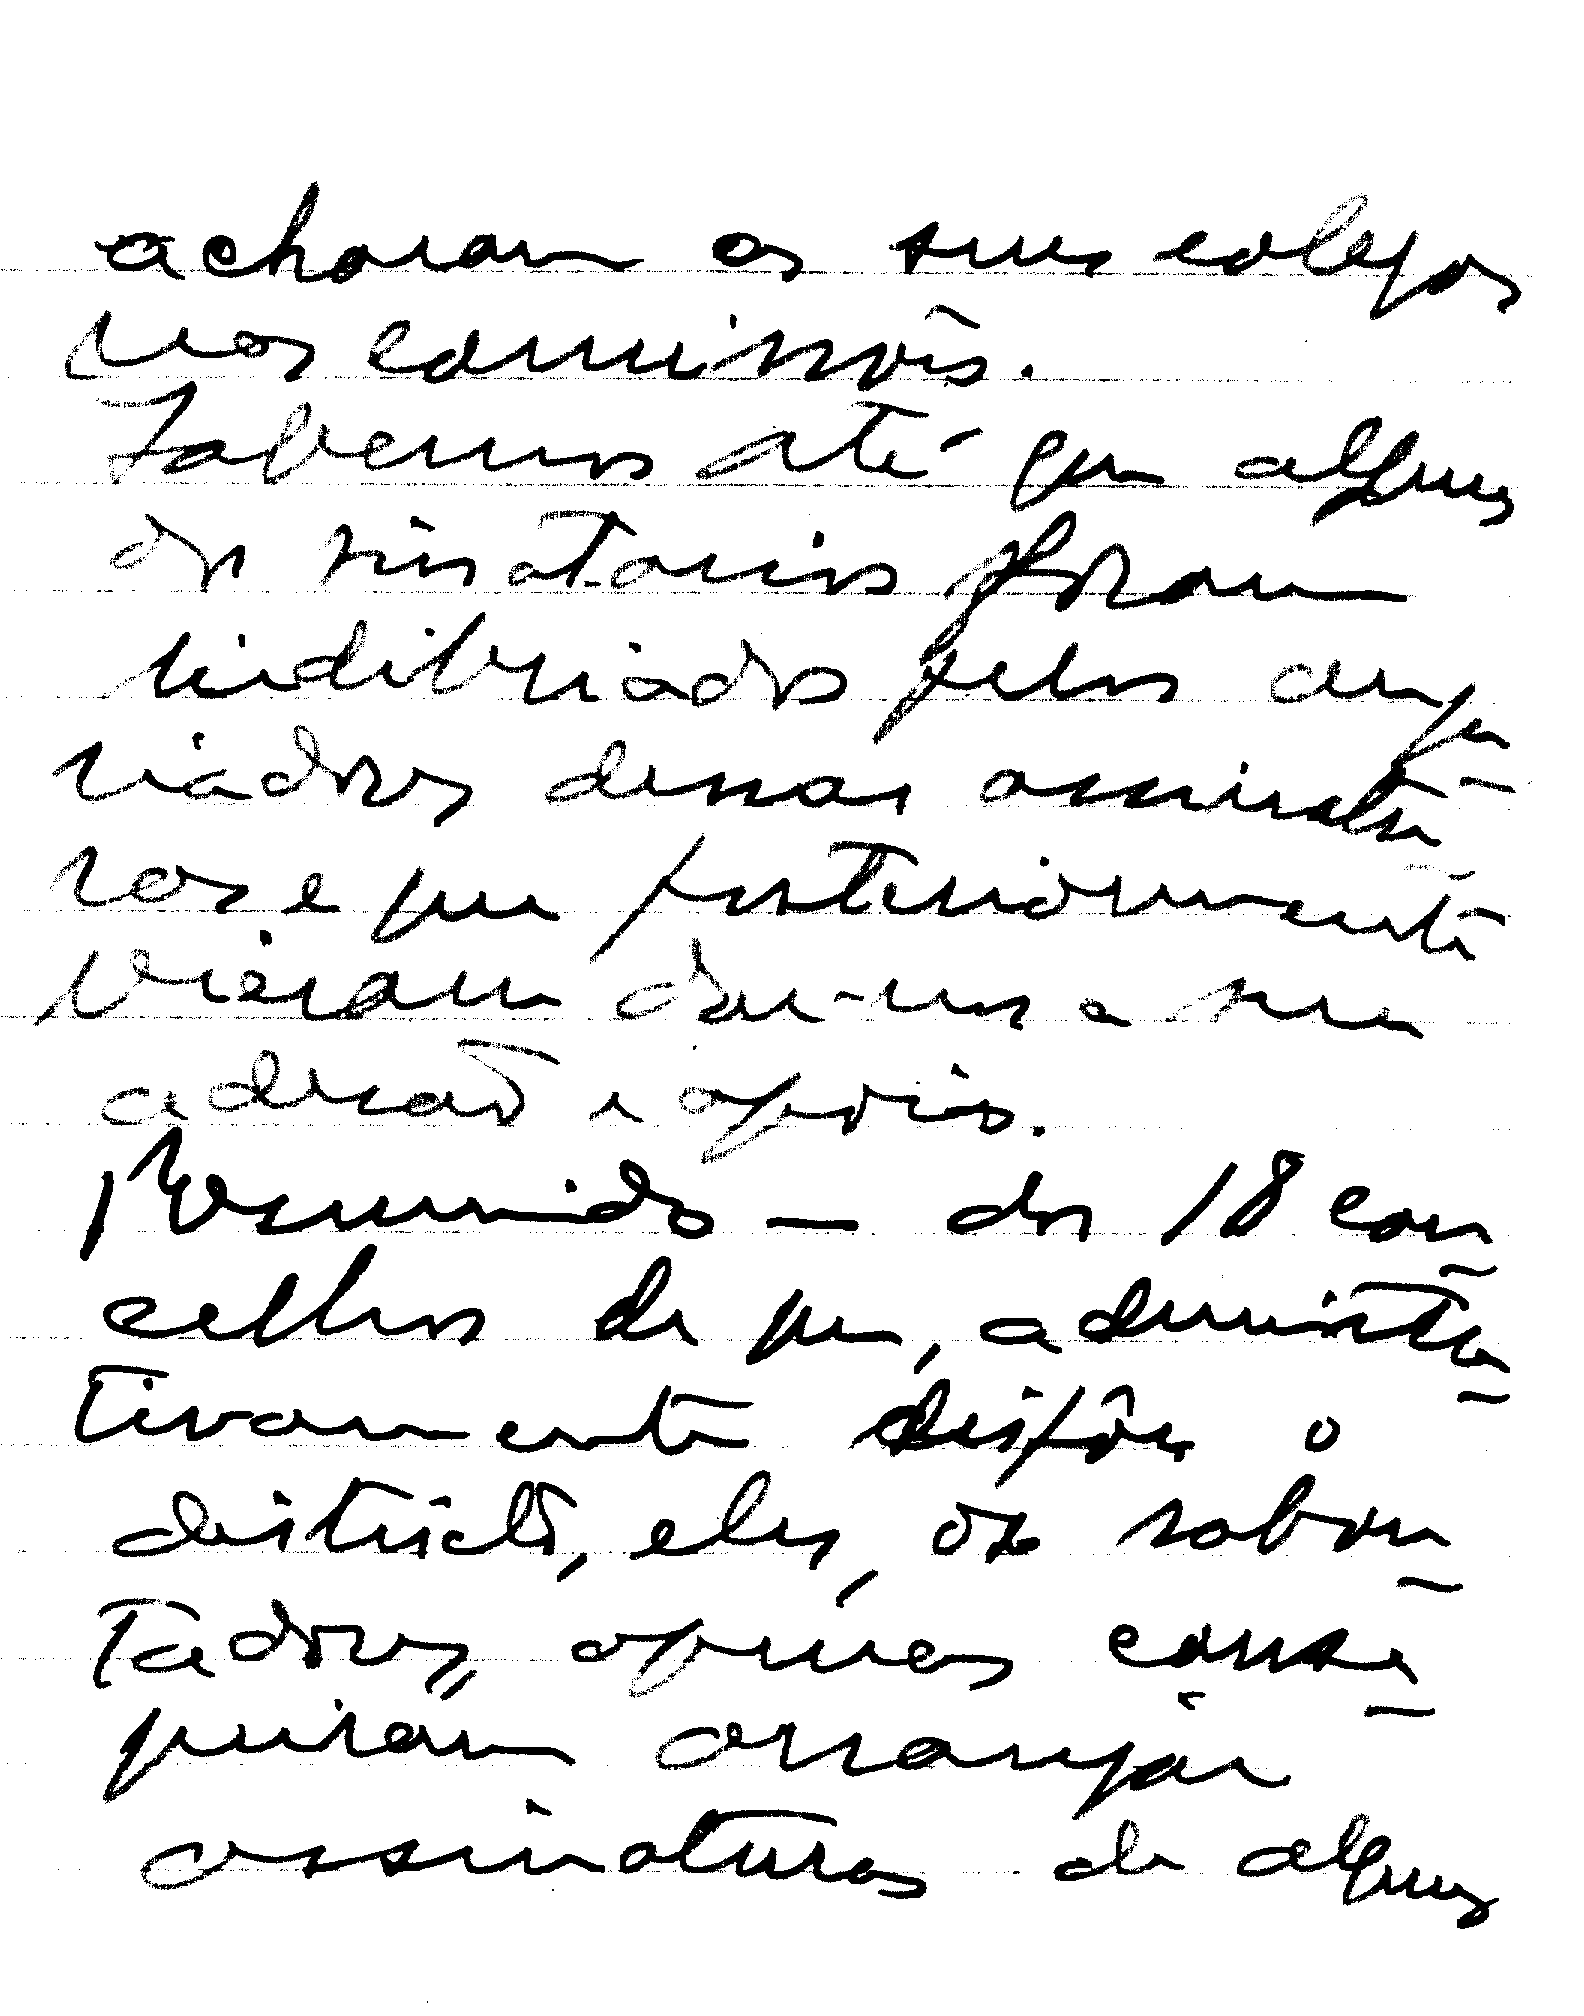 acharam os seus colegas
nas comissões.
Sabemos até que alguns
dos sinatarios foram
ludibriados pelos anga
riadores dessas assinatu
ras e que posteriormente
vieram dar-nos a sua
adesão e apoio.
Resumindo — dos 18 con
celhos de que, administra
tivamente dispõe o
districto, eles, os sabon
tadores, apenas conse
guiram arranjar
assinaturas de alguns